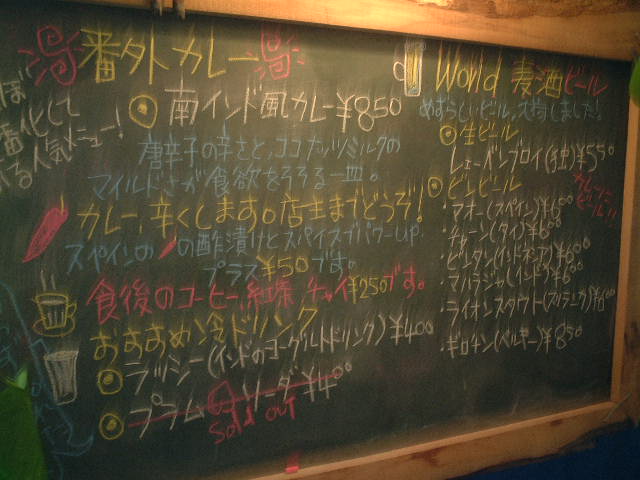 番外カレー
◎南インド風カレー¥850
唐辛子の辛さと、ココナッツミルクの
マイルドさが食欲をそそる一皿。
カレー、辛くします。店主までどうぞ!
スペインの の酢漬けとスパイスでパワーUP
プラス¥50です。
食後のコーヒー、紅茶 チャイ¥250です。
おすすめ冷ドリンク
◎ラッシー(インドのヨーグルトドリンク)¥400
◎プラム ソーダ¥400
Sold out
化して
る人気メニュー!
World 麦酒ビール
めずらしいビール、大持しました!
◎生ビール
レーベンブロイ(独)¥550
◎ビンビール
カレーにビール!!
・マオー(スペイン)¥600
・チャーン(タイ)¥600
・ビンタン(インドネシア)¥600
・マハラジャ(インド)¥600
・ライオンスタウト(スリランカ)¥600
・ギロチン(ベルギー)¥850